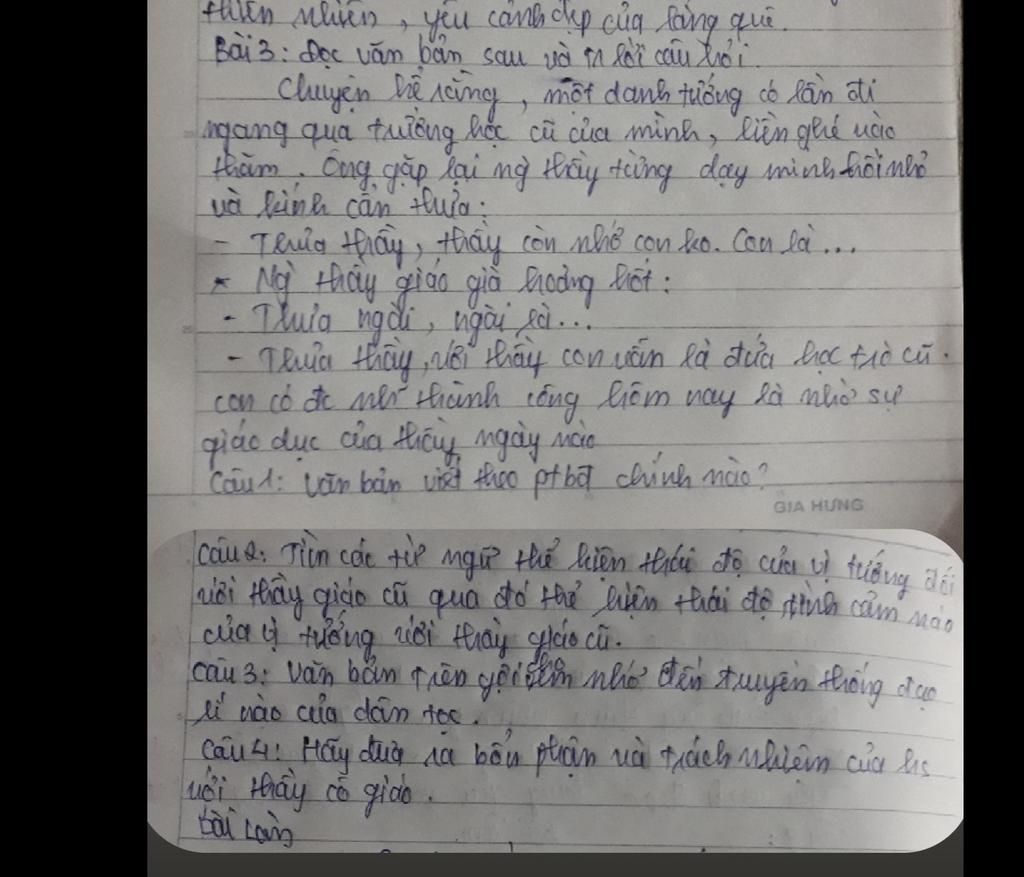 thiên nhiên, yêu cảnh đẹp của làng quê.
Bài 3: Đọc văn bản sau và tr lời câu hỏi.
Chuyện kể rằng, một danh tướng có lần đi
ngang qua trường học cũ của mình, liền ghé vào
thăm. Ông gặp lại ng thầy từng dạy mình hồi nhỏ
và kính cẩn thưa:
- Thưa thầy, thầy còn nhớ con ko. Con là...
* Ng thầy giáo già hoảng hốt:
- Thưa ngài, ngài là...
- Thưa thầy, với thầy con vẫn là đứa học trò cũ.
con có đc nh~ thành công hôm nay là nhờ sự
giáo dục của thầy ngày nào
Câu 1: Văn bản viết theo ptbđ chính nào?
GIA HƯNG
Câu 2: Tìm các từ ngữ thể hiện thái độ của vị tướng đối
với thầy giáo cũ qua đó thể hiện thái độ, tình cảm nào
của vị tướng với thầy giáo cũ.
Câu 3: Văn bản trên gợi cho em nhớ đến truyền thống đạo
lí nào của dân tộc.
Câu 4: Hãy đưa ra bổn phận và trách nhiệm của hs
với thầy cô giáo.
Bài làm